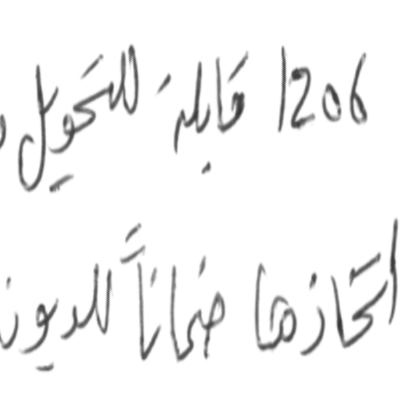 1206 قابلة للتحويل
احتجازها ضماناً للديون